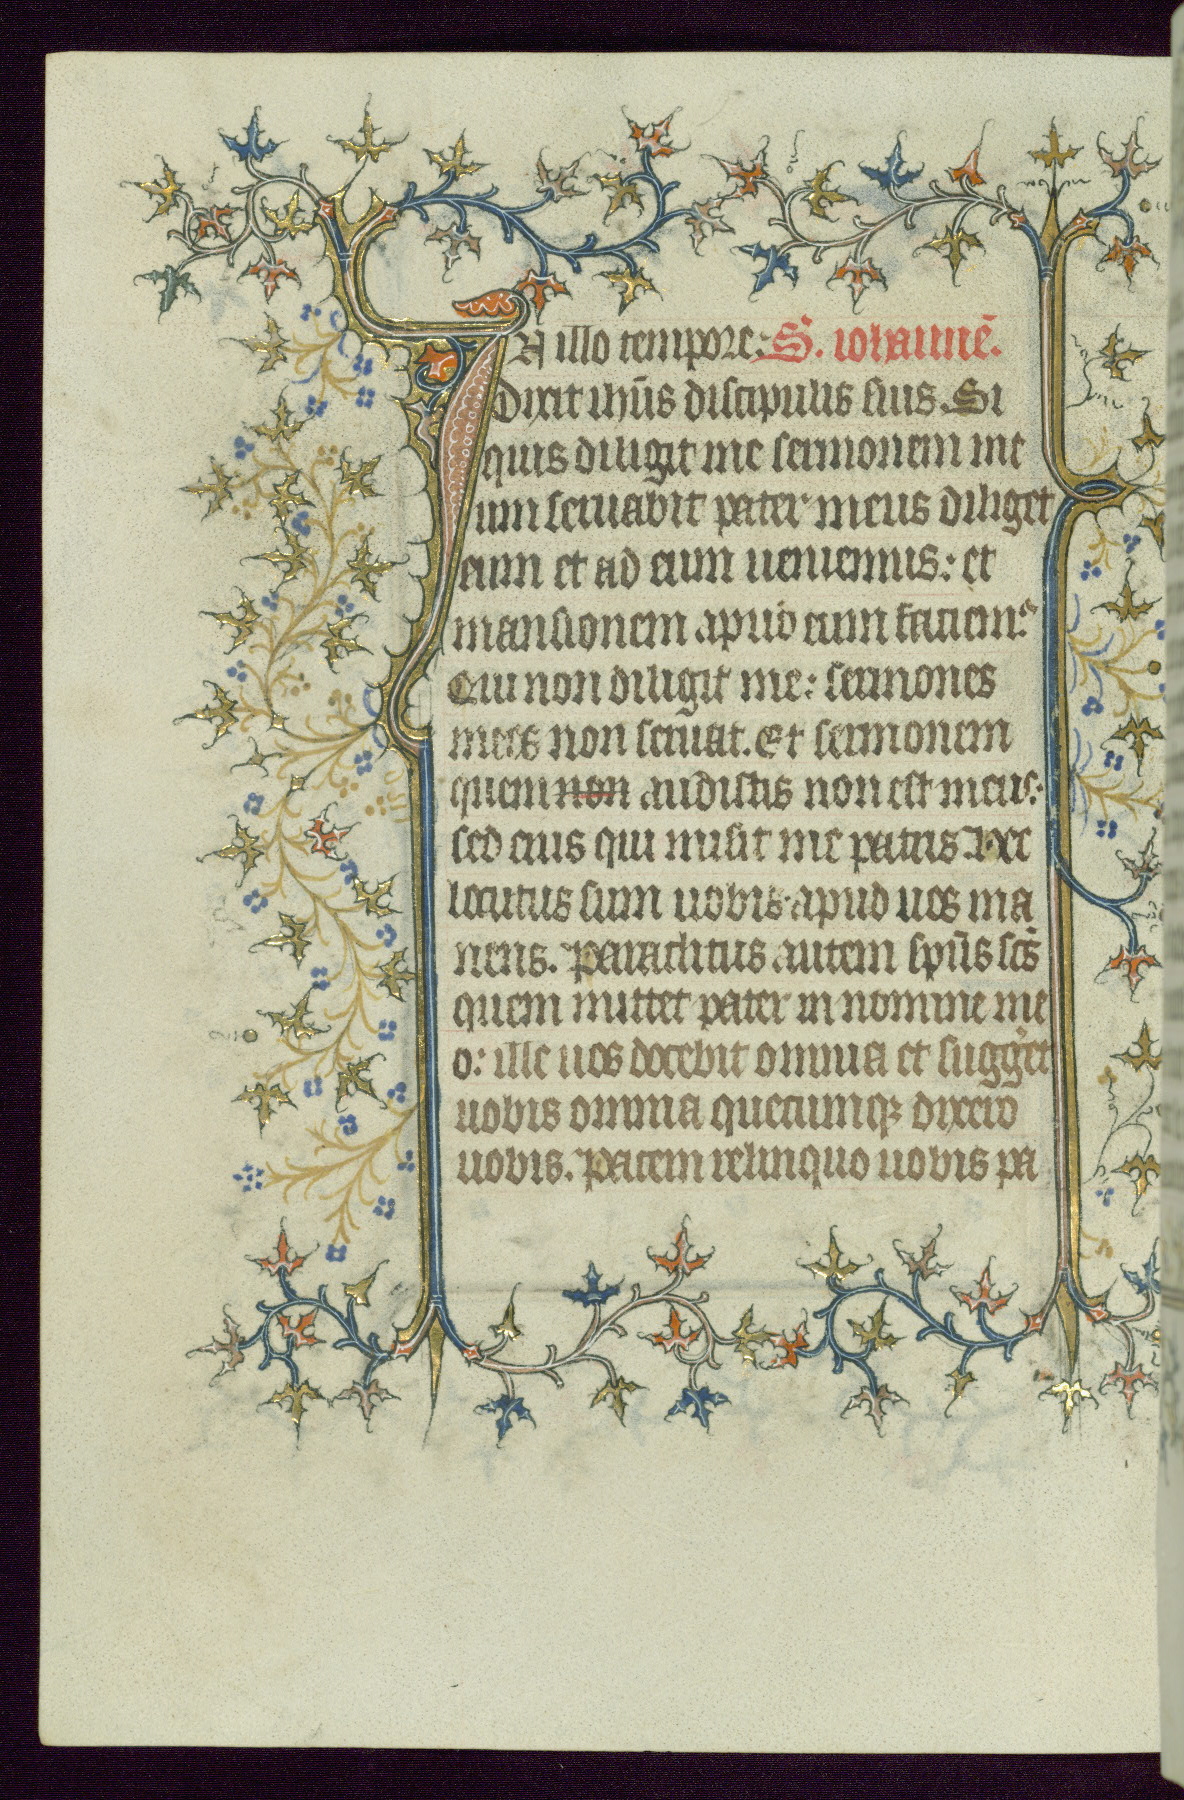 In illo tempore: S. iohanne̅.
Dixit ihu̅s discipulis suis. Si
quis diligit me sermonem me
um seruabit pater meus diliget
eum et ad eum ueniemus: et
mansionem apud eum faciem᷒
Qui non diligit me: sermones
meos non seruat. Et sermonem
quem non audistis non est meus:
sed eius qui misit me patris. Hec
locutus sum uobis apud uos ma
nens. Paraclitus autem spu̅s sc̅s
quem mittet pater in nomine me
o: ille uos docebit omnia et sugg'et
uobis omnia quecumqꝫ dixero
uobis. Pacem relinquo uobis pa